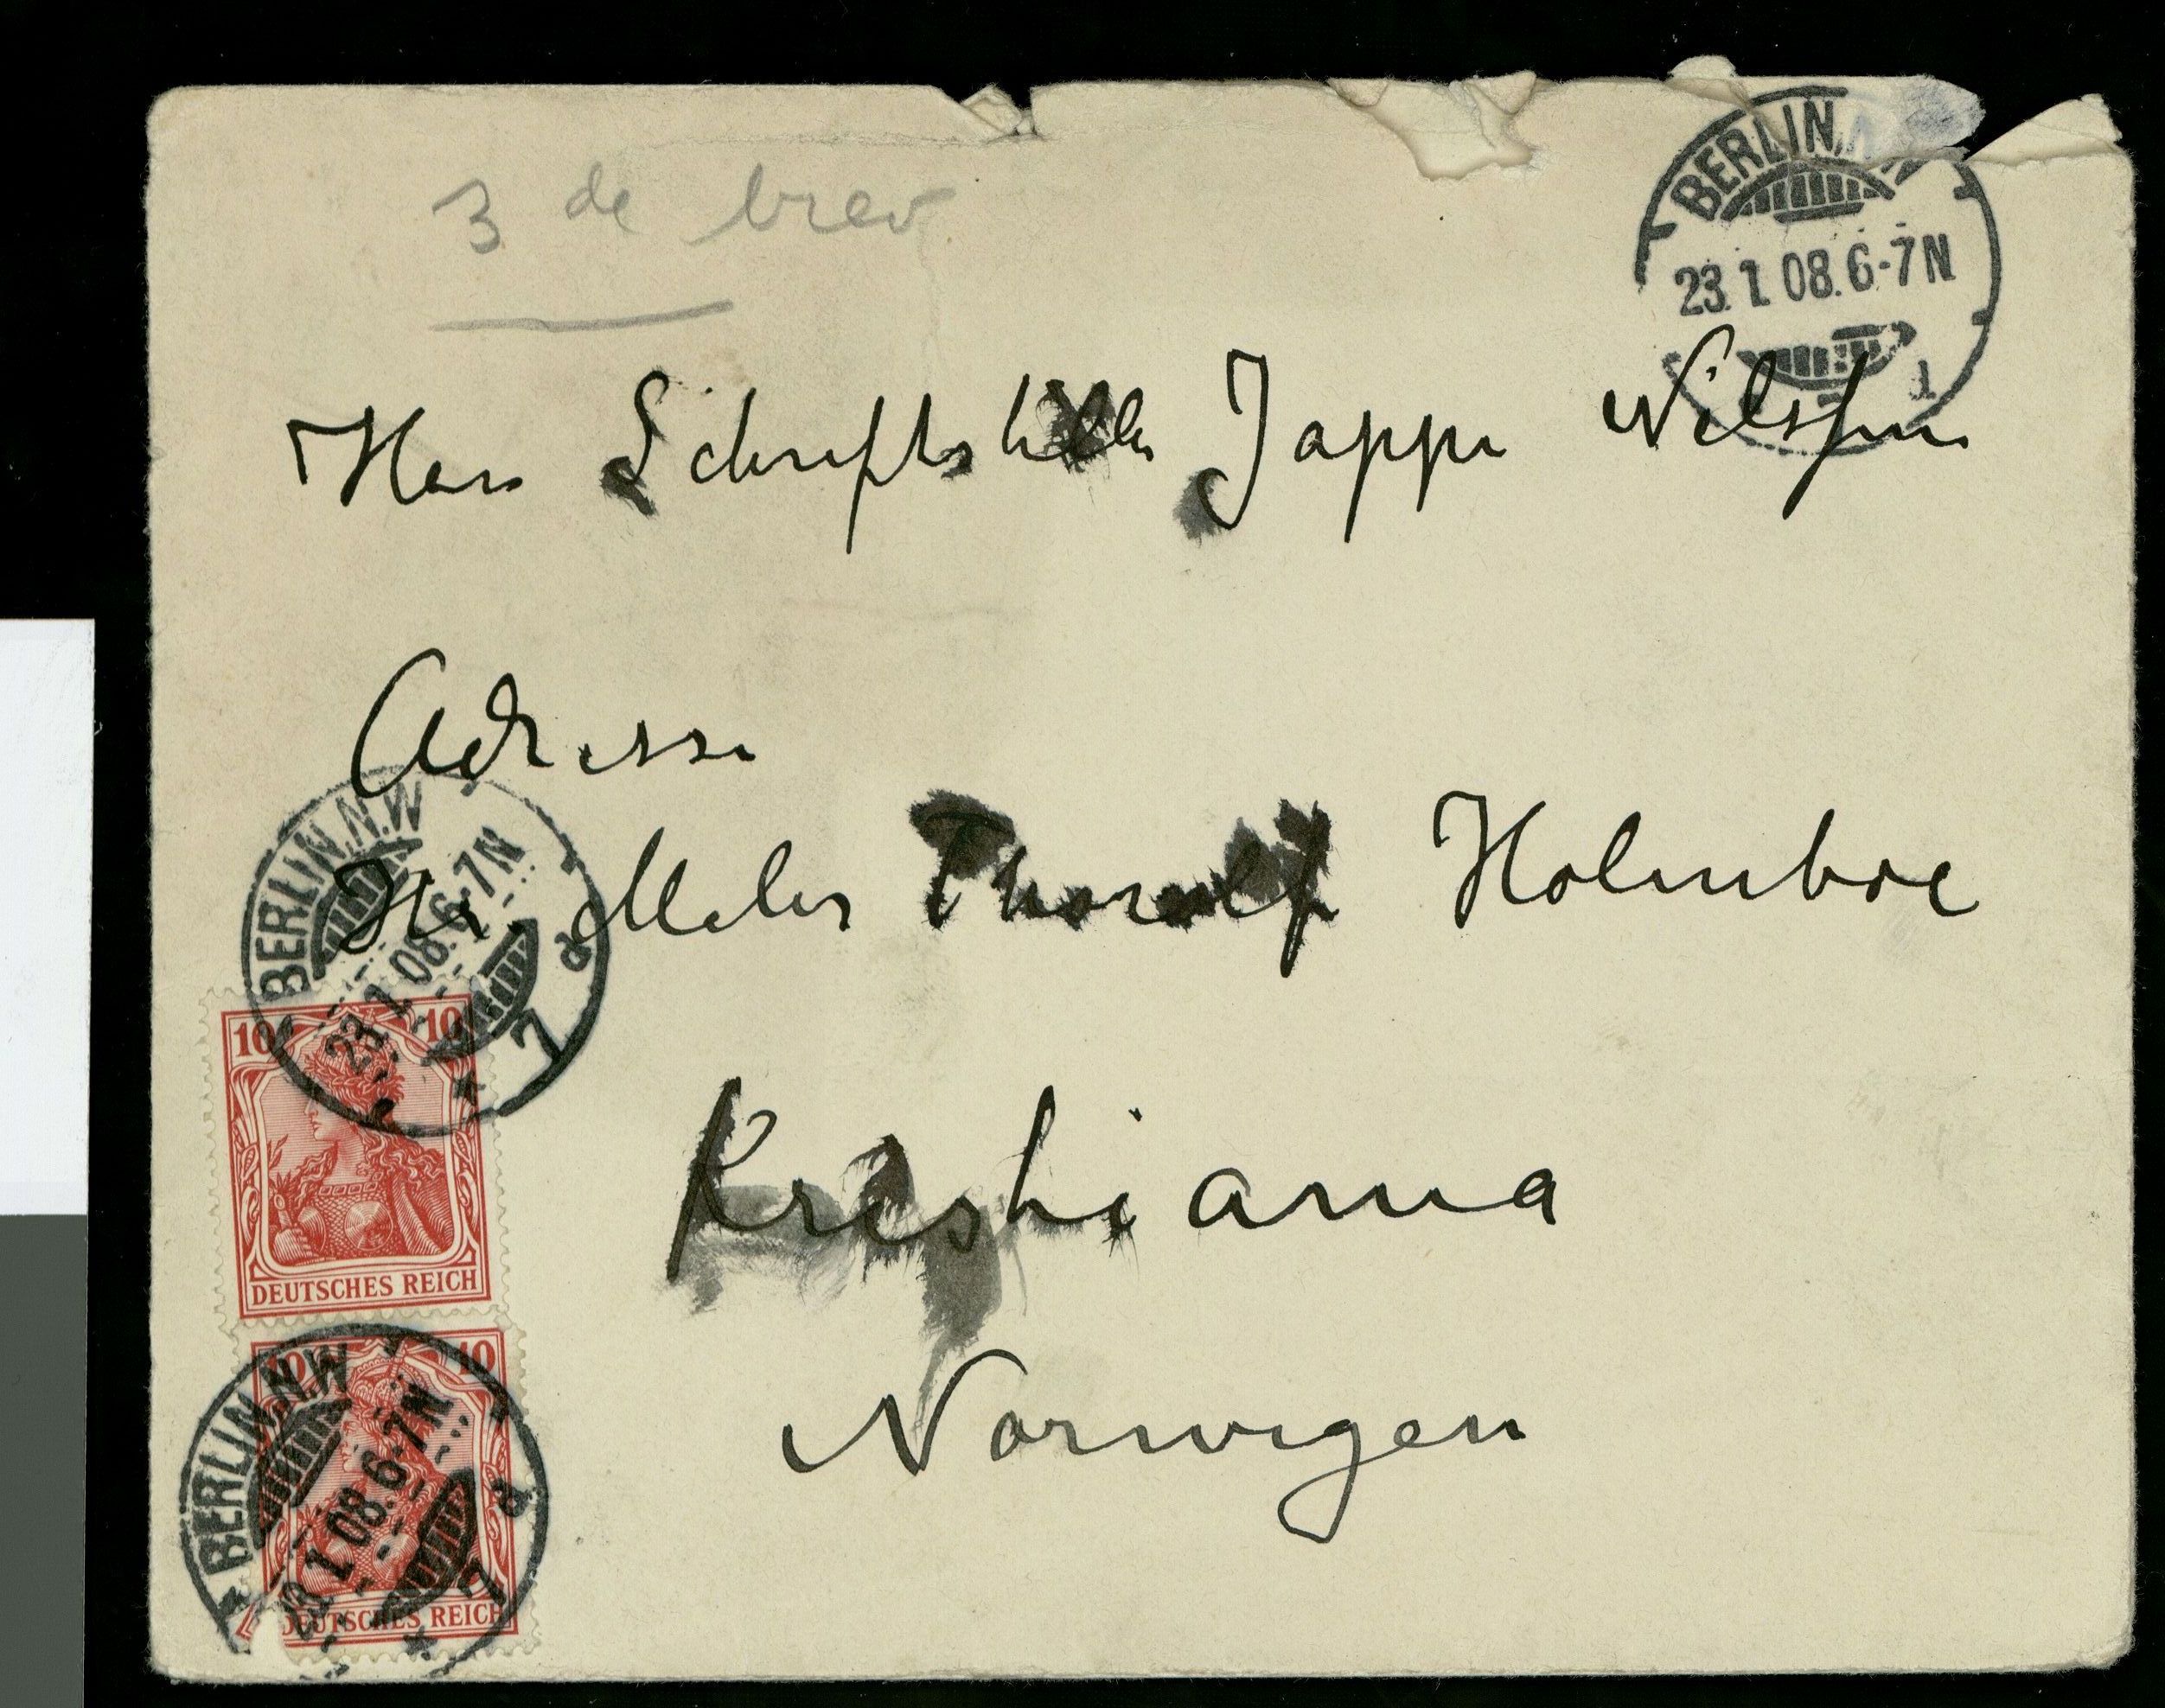 3 de brev
BERLIN, N
23.1.08.6-7N
1
Herr Schriftsteller Jappe Nilssen
Adresse
Hr. Maler Thorolf Holmboe
Kristiania
Norwegen
BERLIN.N.W
23.1.08.6-7N
a
7
*
10 10
DEUTSCHES REICH
BERLIN.N.W
23.1.08.6-7N
a
7
*
10 10
DEUTSCHES REICH